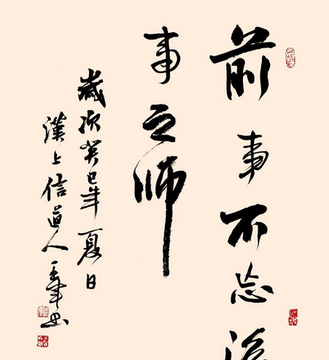 前事不忘后
事之师
歲次癸巳年夏日
漢上信道人
书